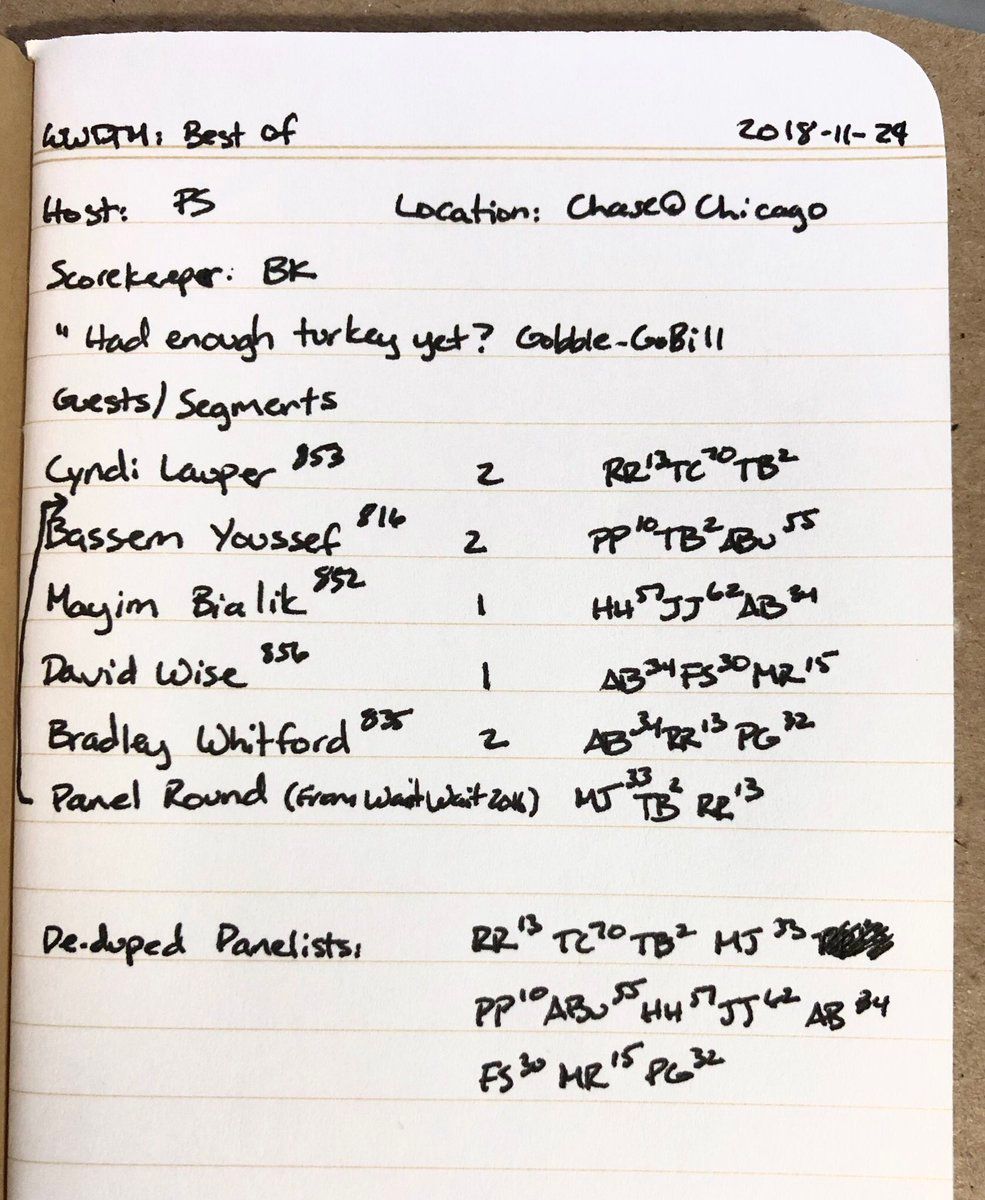 WWDTM: Best of 2018-11-24
Host: PS Location: Chase@Chicago
Scorekeeper: BK
" Had enough turkey yet? Gobble-GoBill
Guests/Segments
Cyndi Lauper 853 2 RR13 TC70 TB2
Bassem Youssef 816 2 PP10 TB2 ABu55
Mayim Bialik 852 1 HH57 JJ62 AB34
David Wise 856 1 AB34 FS30 MR15
Bradley Whitford 835 2 AB34 RR13 PG32
Panel Round (From Wait Wait 2016) MJ33 TB2 RR13
De-duped Panelists: RR13 TC70 TB2 MJ33
PP10 ABu55 HH57 JJ62 AB34
FS30 MR15 PG32